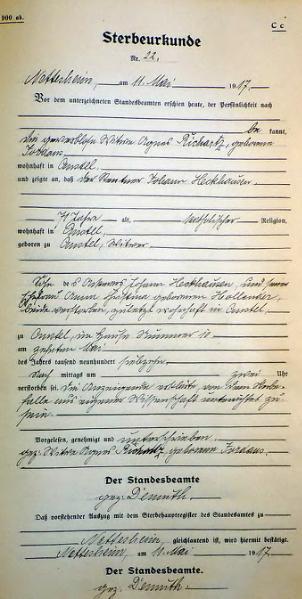 100 ab.
C c
Sterbeurkunde
Nr. 22.
Nettersheim, am 11. Mai 1917.
Vor dem unterzeichneten Standesbeamten erschien heute, der Persönlichkeit nach
be kannt,
die gewerblose Witwe Agnes Richartz, geborene
wohnhaft in
und zeigte an, daß der Rentner Johann Heckhausen,
Jahre alt, katholischer Religion,
wohnhaft in
geboren zu Witwer
Sohn des Johann Heckhausen, und seiner
Ehefrau Anna Christina geborenen Hollender,
beide verstorben, zuletzt wohnhaft in
zu im Hause Nummer
am Mai
des Jahres tausend neunhundert siebzehn
Nach mittags um zwei Uhr
verstorben sei. Die Anzeigende erklärte von dem Sterbe-
falle aus eigener Wissenschaft unterrichtet zu
sein.
Vorgelesen, genehmigt und unterschrieben
gez. Witwe Agnes Richartz, geborene
Der Standesbeamte
gez. Diemuth.
Daß vorstehender Auszug mit dem Sterbehauptregister des Standesamtes zu
Nettersheim, gleichlautend ist, wird hiermit bestätigt.
Nettersheim, am 11. Mai 1917.
Der Standesbeamte.
gez. Diemuth.